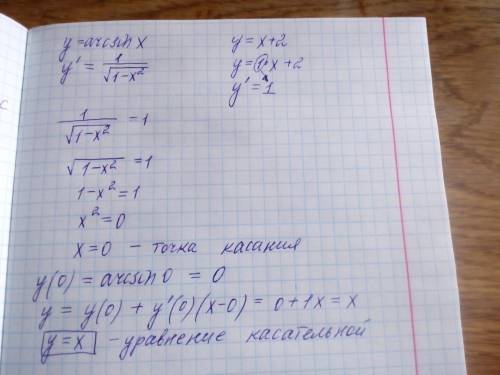 y = arcsin x
y' = 1/√(1-x²)
y = x+2
y = 1·x + 2
y' = 1
1/√(1-x²) = 1
√(1-x²) = 1
1-x² = 1
x² = 0
x = 0 - точка касания
y(0) = arcsin 0 = 0
y = y(0) + y'(0)(x-0) = 0 + 1x = x
y = x - уравнение касательной